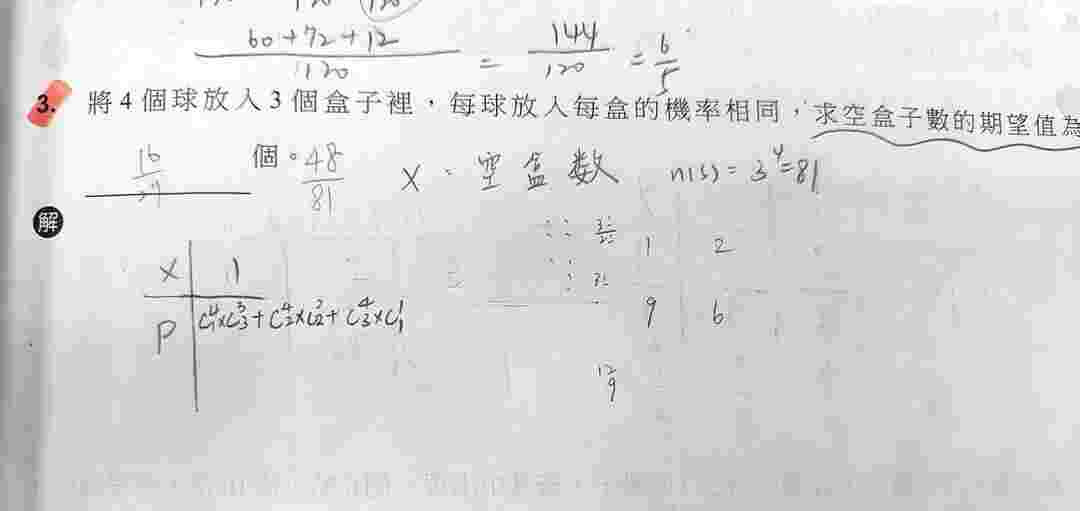 60+72+12 / 120 = 144 / 120 = 6 / 5
3. 將4個球放入3個盒子裡,每球放入每盒的機率相同,求空盒子數的期望值為
16 個。 48 / 81 X:空盒数 n(s) = 3^4 = 81
解
1 2
X 1
9 6
P C^4_1×C^3_3+C^4_2×C^2_2+C^4_3×C^1_1
12
9